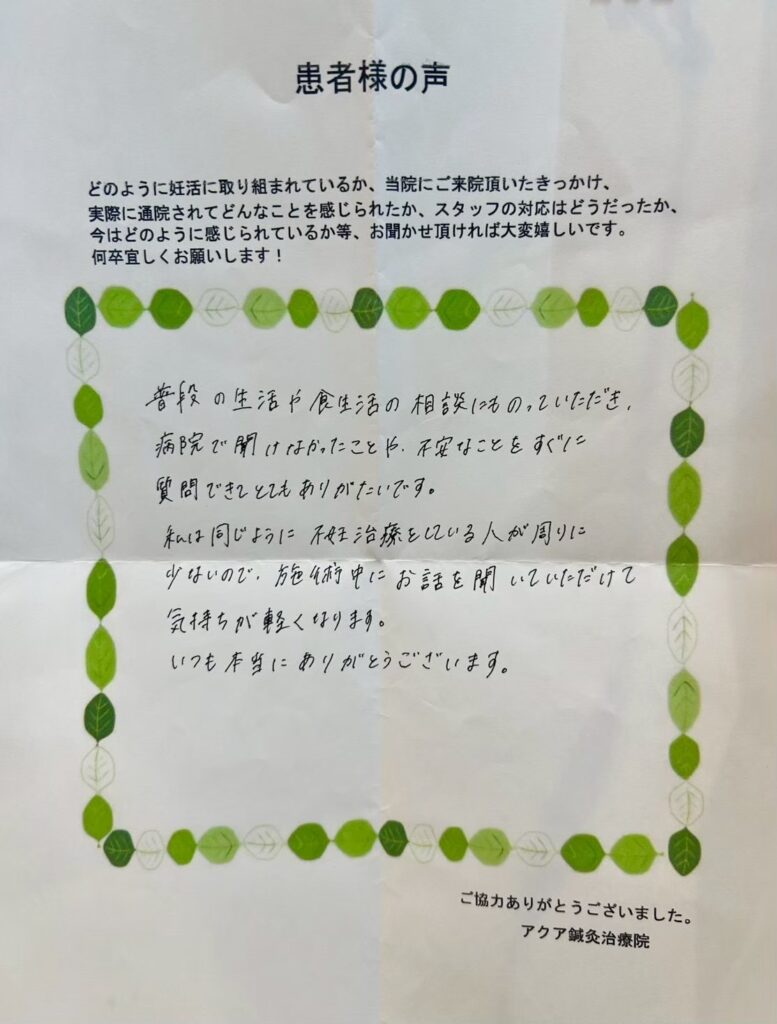 患者様の声
どのように妊活に取り組まれているか、当院にご来院頂いたきっかけ、
実際に通院されてどんなことを感じられたか、スタッフの対応はどうだったか、
今はどのように感じられているか等、お聞かせ頂ければ大変嬉しいです。
何卒宜しくお願いします！
普段の生活や食生活の相談にものっていただき、
病院で聞けなかったことや、不安なことをすぐに
質問できてとてもありがたいです。
私は同じように不妊治療をしている人が周りに
少ないので、施術中にお話を聞いていただけて
気持ちが軽くなります。
いつも本当にありがとうございます。
ご協力ありがとうございました。
アクア鍼灸治療院